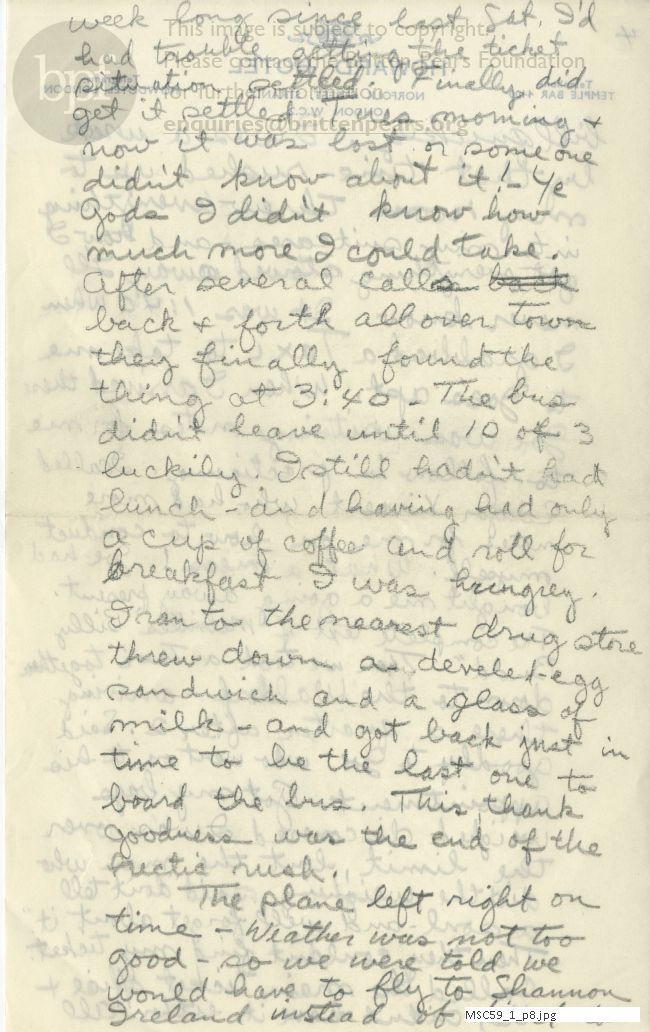 week long since last Sat. I'd
had trouble getting the ticket
situation settled. Finally did
get it settled Tues morning &
now it was lost or someone
didn't know about it! - Ye
Gods I didn't know how
much more I could take.
After several calls back
back & forth all over town
they finally found the
thing at 3:40 - The bus
didn't leave until 10 of 3
luckily. I still hadn't had
lunch - and having had only
a cup of coffee and roll for
breakfast I was hungrey.
I ran to the nearest drug store
threw down a develed-egg
sandwich and a glass of
milk - and got back just in
time to be the last one to
board the bus. This, thank
goodness was the end of the
hectic rush.
The plane left right on
time - Weather was not too
good - so we were told we
would have to fly to Shannon
Ireland instead of
This image is subject to copyright
Please contact the Britten-Pears Foundation
for further information
enquiries@brittenpears.org
bpf
MSC59_1_p8.jpg